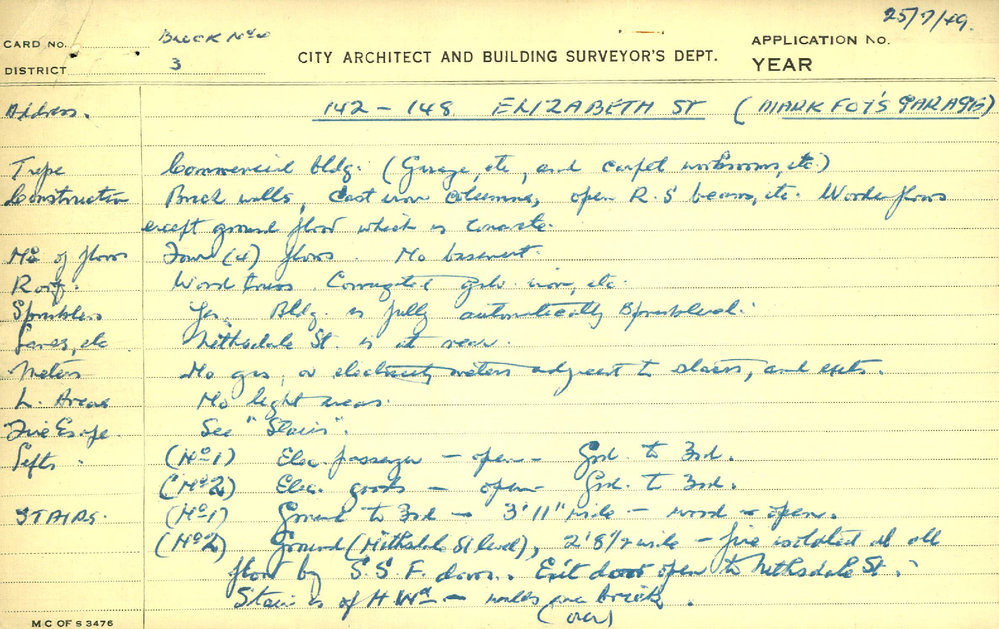 25/7/49.
CARD NO. BLOCK No
CITY ARCHITECT AND BUILDING SURVEYOR'S DEPT.
APPLICATION NO.
DISTRICT 3
YEAR
Address. 142 - 148 ELIZABETH ST (MARK FOY'S GARAGE)
Type Commercial bldg. (Garage, etc, and carpet workrooms, etc.)
Construction Brick walls, cast iron columns, open R.S beams, etc. Wooden floors
except ground floor which is concrete.
No of floors Four (4) floors. No basement.
Roof. Wood truss. Corrugated galv. iron, etc.
Sprinklers Yes. Bldg. is fully automatically sprinklered.
Lanes, etc Nithsdale St. is at rear.
Meters No gas, or electricity meters adjacent to stairs, and exits.
L. Areas No light areas.
Fire Escape See "Stairs".
Lifts. (No 1) Elec. passenger - open - Grd. to 3rd.
(No 2) Elec. goods - open - Grd. to 3rd.
STAIRS. (No 1) Ground to 3rd - 3'11" wide - wood - open.
(No 2) Ground (Nithsdale St level), 2'8½ wide - fire isolated at all
floors by S.S.F. doors. Exit door open to Nithsdale St.
Stair is of H Wd - walls are brick.
(over)
M C OF S 3476